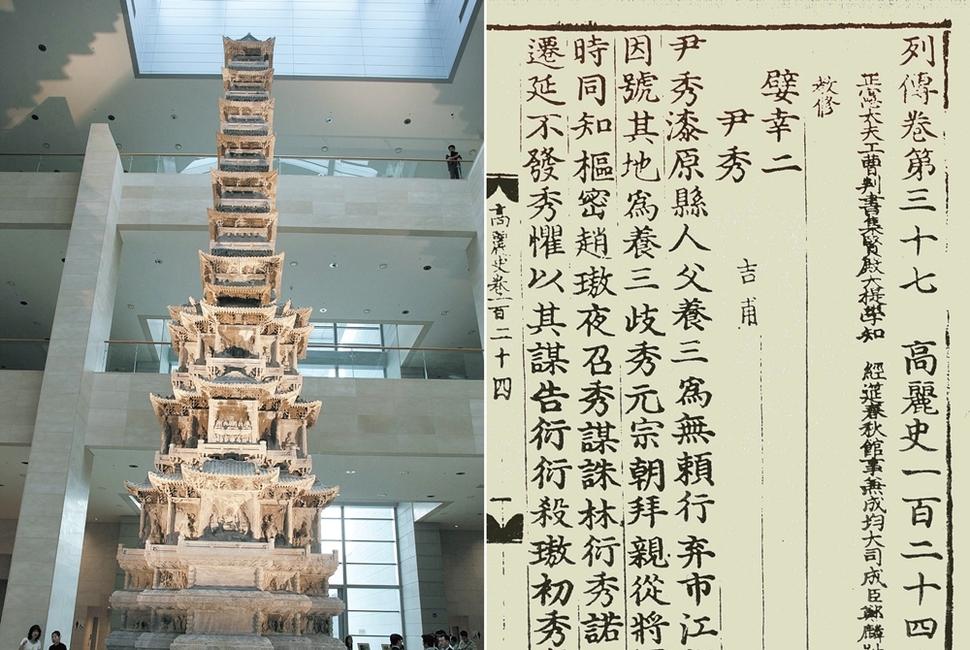 列傳卷第三十七 高麗史一百二十四
正憲大夫工曹判書集賢殿大提學知 經筵春秋館事兼成均大司成臣鄭麟
教修
嬖幸二
尹秀 吉甫
尹秀漆原縣人父養三爲無賴行弃市江
因號其地爲養三歧秀元宗朝拜親從將
時同知樞密趙璈夜召秀謀誅林衍秀諾
遷延不發秀懼以其謀告衍衍殺璈初秀
高麗史卷一百二十四